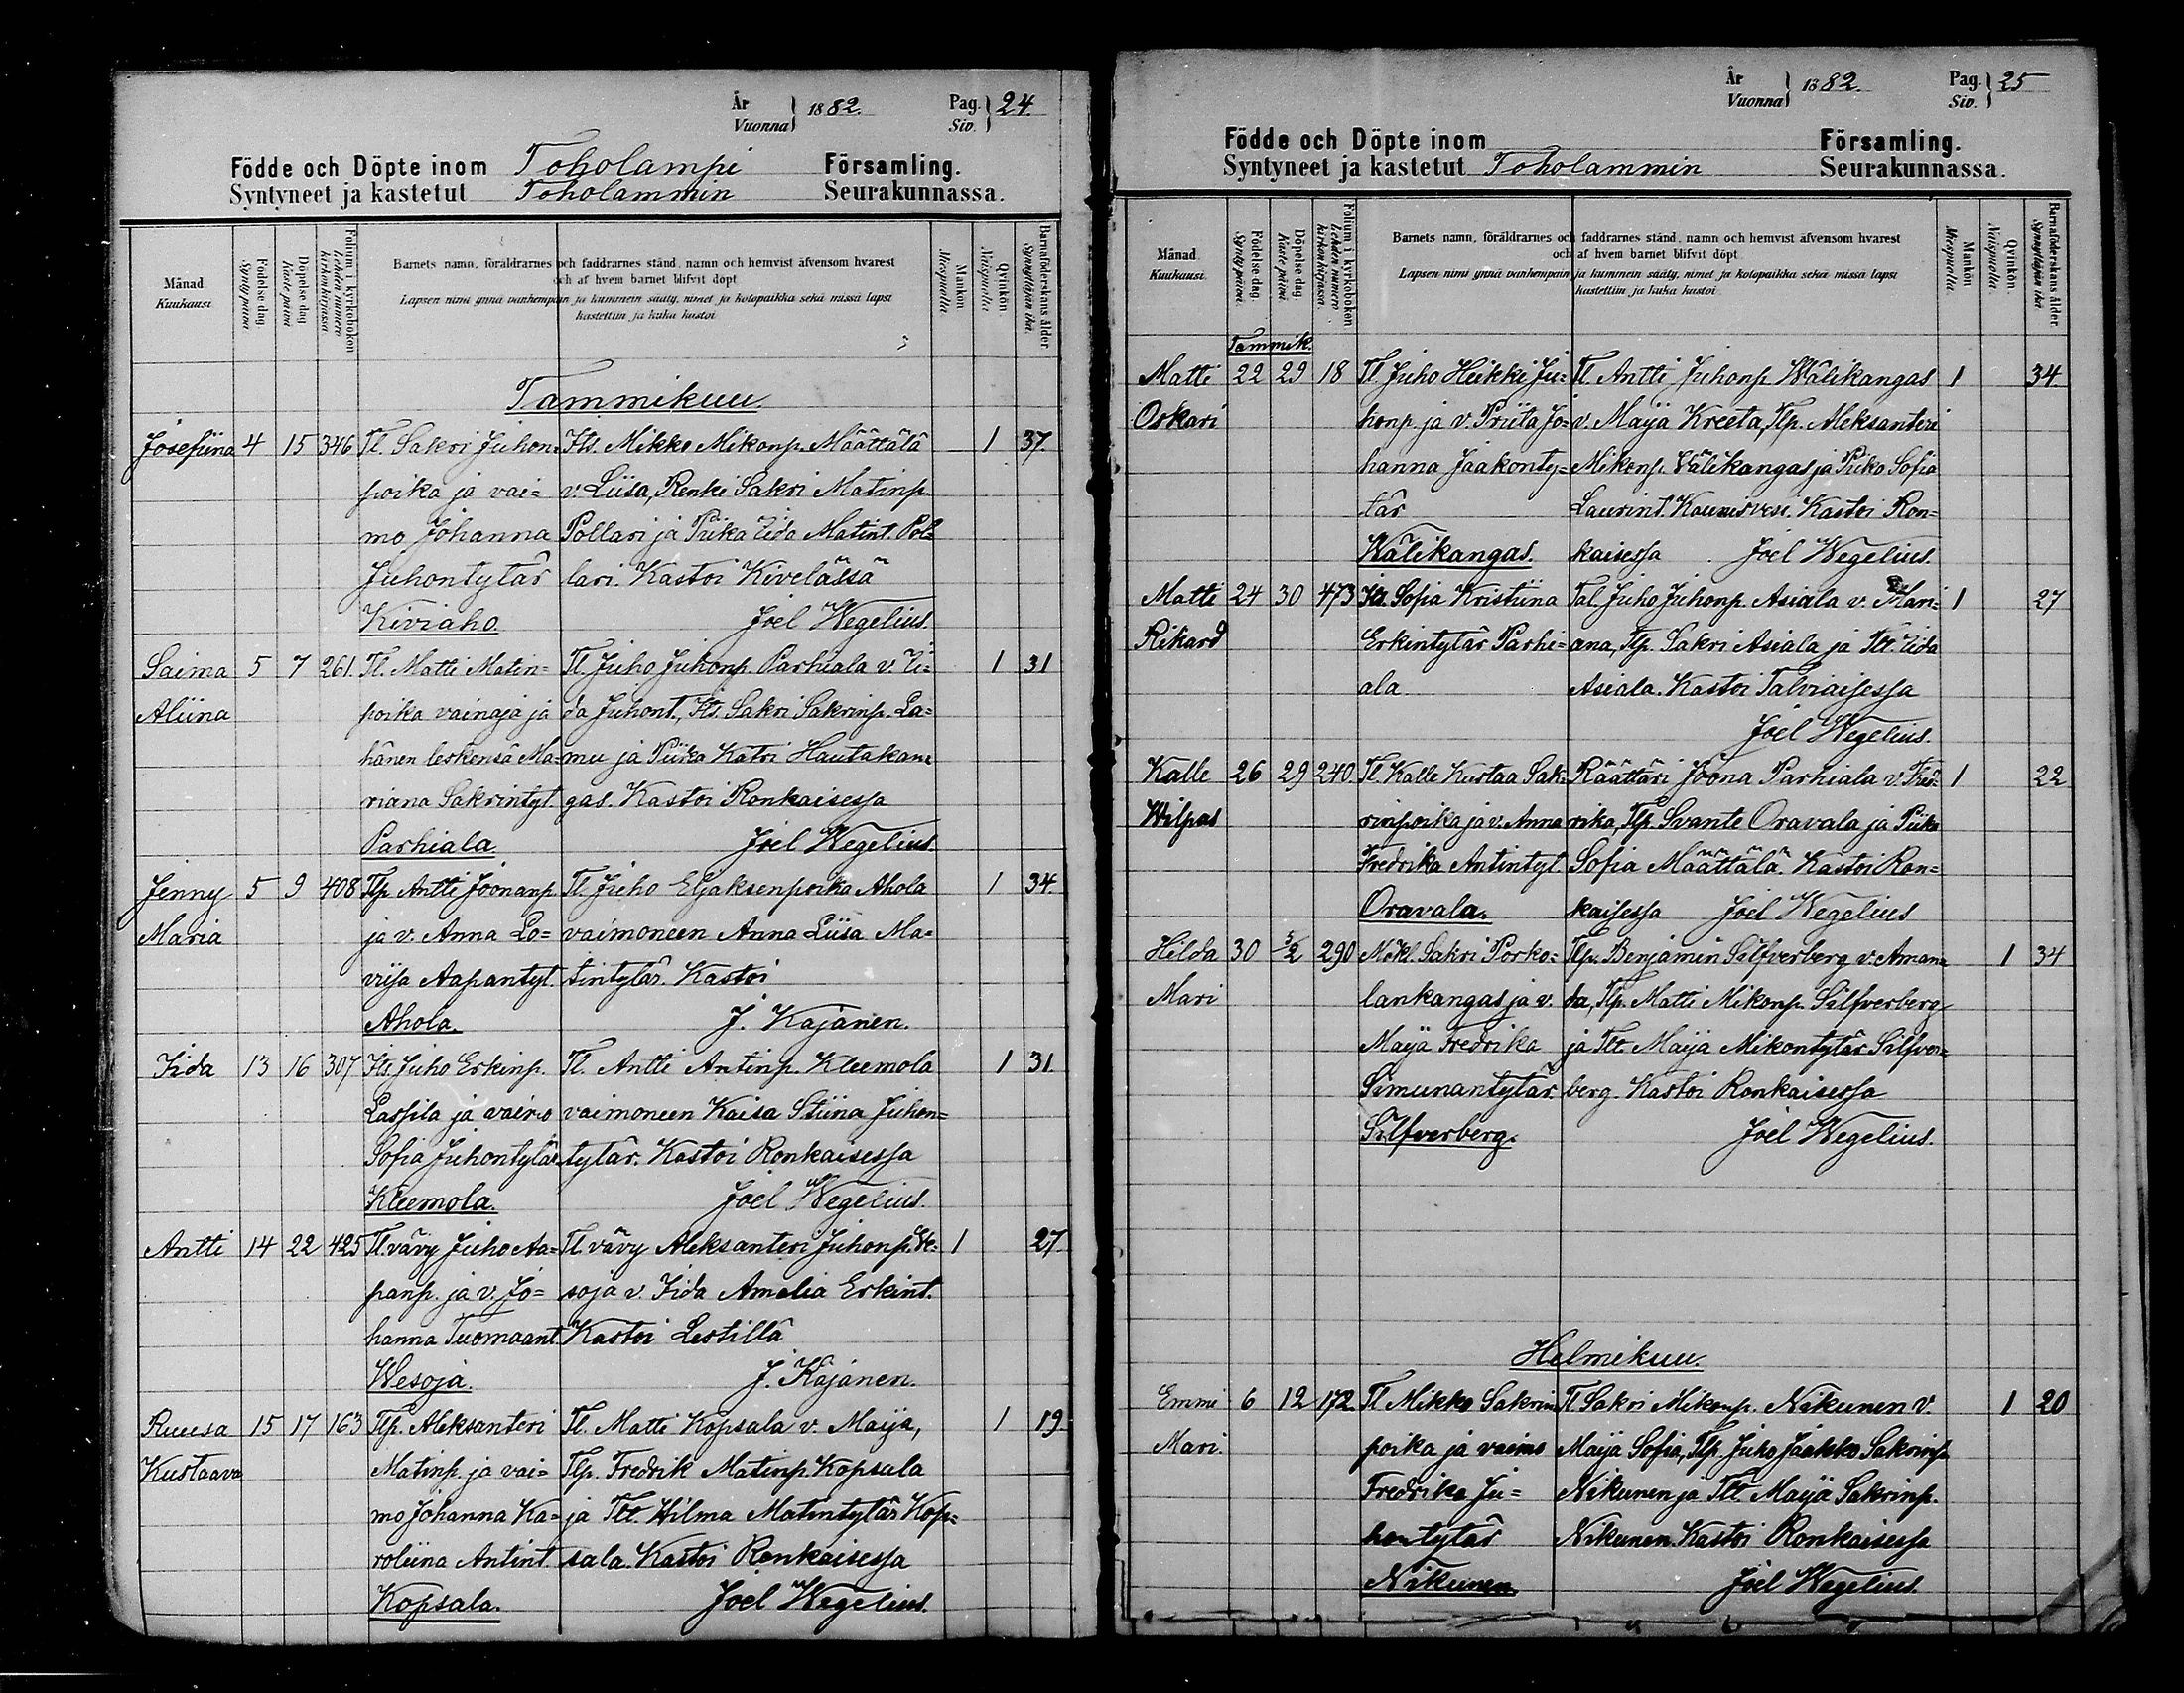 År
Vuonna } 1882. Pag.
Siv. } 24.
Födde och Döpte inom Toholampi Församling.
Syntyneet ja kastetut Toholammin Seurakunnassa.
Månad
Kuukausi
Födelse dag
Syntypäivä
Döpelse dag
Kastepäivä
Folium i kyrkoboken
Lehden numero kirkonkirjassa
Barnets namn, föräldrarnes och faddrarnes stånd, namn och hemvist äfvensom hvarest
och af hvem barnet blifvit döpt
Lapsen nimi ynnä vanhempain ja kummein sääty, nimet ja kotopaikka sekä missä lapsi
kastettiin ja kuka kastoi
Mankön
Miespuolia
Qvinkön
Naispuolia
Barnaföderskans ålder
Synnyttäjän ikä
Tammikuu.
Josefiina 4 15 346 Tl. Sakri Juhon- Its. Mikko Mikonp. Määttälä 1 37.
poika ja vai= v. Liisa, Renki Sakri Matinp.
mo Johanna Pollari ja Piika Iida Matint. Pol=
Juhontytär lari. Kastoi Kivelässä
Kiviaho. Joel Wegelius.
Saima 5 7 261. Tl. Matti Matin= Tl. Juho Juhonp. Parhiala v. Ii= 1 31
Aliina poika vainaja ja da Juhont., Its. Sakri Sakrinp. La=
hänen leskensä Ma= mu ja Piika Katri Hautakan=
riana Sakrintyt. gas. Kastoi Ronkaisessa
Parhiala. Joel Wegelius
Jenny 5 9 408 Tlp. Antti Joonanp. Tl. Juho Eljaksenpoika Ahola 1 34.
Maria ja v. Anna Lo= vaimoneen Anna Liisa Ma=
viisa Aapantyt. tintytär. Kastoi
Ahola. J. Kajanen.
Iida 13 16 307 Its. Juho Erkinp. Tl. Antti Antinp. Kleemola 1 31.
Lassila ja vaimo vaimoneen Kaisa Stiina Juhon=
Sofia Juhontytär tytär. Kastoi Ronkaisessa
Kleemola. Joel Wegelius.
Antti 14 22 425 Tl. vävy Juho Aa= Tl. vävy Aleksanteri Juhonp. We= 1 27.
panp. ja v. Jo= soja v. Iida Amalia Erkint.
hanna Tuomaant. Kastoi Lestillä
Wesoja. J. Kajanen.
Ruusa 15 17 163 Tlp. Aleksanteri Tl. Matti Kopsala v. Maija, 1 19.
Kustaava Matinp. ja vai= Tlp. Fredrik Matinp. Kopsala
mo Johanna Ka= ja Tlt. Hilma Matintytär Kop=
roliina Antint. sala. Kastoi Ronkaisessa
Kopsala. Joel Wegelius.
År
Vuonna } 1882. Pag.
Siv. } 25
Födde och Döpte inom Församling.
Syntyneet ja kastetut Toholammin Seurakunnassa.
Månad
Kuukausi
Födelse dag
Syntypäivä
Döpelse dag
Kastepäivä
Folium i kyrkoboken
Lehden numero kirkonkirjassa
Barnets namn, föräldrarnes och faddrarnes stånd, namn och hemvist äfvensom hvarest
och af hvem barnet blifvit döpt
Lapsen nimi ynnä vanhempain ja kummein sääty, nimet ja kotopaikka sekä missä lapsi
kastettiin ja kuka kastoi
Mankön
Miespuolia
Qvinkön
Naispuolia
Barnaföderskans ålder.
Synnyttäjän ikä.
Tammik.
Matti 22 29 18 Tl. Juho Heikki Ju= Tl. Antti Juhonp. Wälikangas 1 34
Oskari honp. ja v. Priita Jo= v. Maija Kreeta, Tlp. Aleksanteri
hanna Jaakonty= Mikonp. Välikangas ja Piika Sofia
tär Laurint. Kaunisvesi. Kastoi Ron=
Wälikangas. kaisessa Joel Wegelius.
Matti 24 30 473 Its. Sofia Kristiina Tal. Juho Juhonp. Asiala v. Mari= 1 27
Rikard Erkintytär Parhi= ana, Tlp. Sakri Asiala ja Tlt. Iida
ala. Asiala. Kastoi Talviaisessa
Joel Wegelius.
Kalle 26 29 240. Tl. Kalle Kustaa Sak= Räättäri Joona Parhiala v. Fred= 1 22
Wilpas rinpoika ja v. Anna rika, Tlp. Svante Oravala ja Piika
Fredrika Antintyt. Sofia Määttälä. Kastoi Ron=
Oravala. kaisessa Joel Wegelius
Hilda 30 5/2 290 Mökl. Sakri Porko= Tlp. Benjamin Silfverberg v. Aman= 1 34
Mari lankangas ja v. da, Tlp. Matti Mikonp. Silfverberg
Maija Fredrika ja Tlt. Maija Mikontytär Silfver=
Simunantytär berg. Kastoi Ronkaisessa
Silfverberg. Joel Wegelius.
Helmikuu.
Emmi 6 12 172. Tl Mikko Sakrin Tl Sakri Mikonp. Nikunen v. 1 20
Mari. poika ja vaimo Maija Sofia, Tlp. Juho Jaakko Sakrinp.
Fredrika Ju= Nikunen ja Tlt. Maija Sakrinp.
hontytär Nikunen. Kastoi Ronkaisessa
Nikunen. Joel Wegelius.